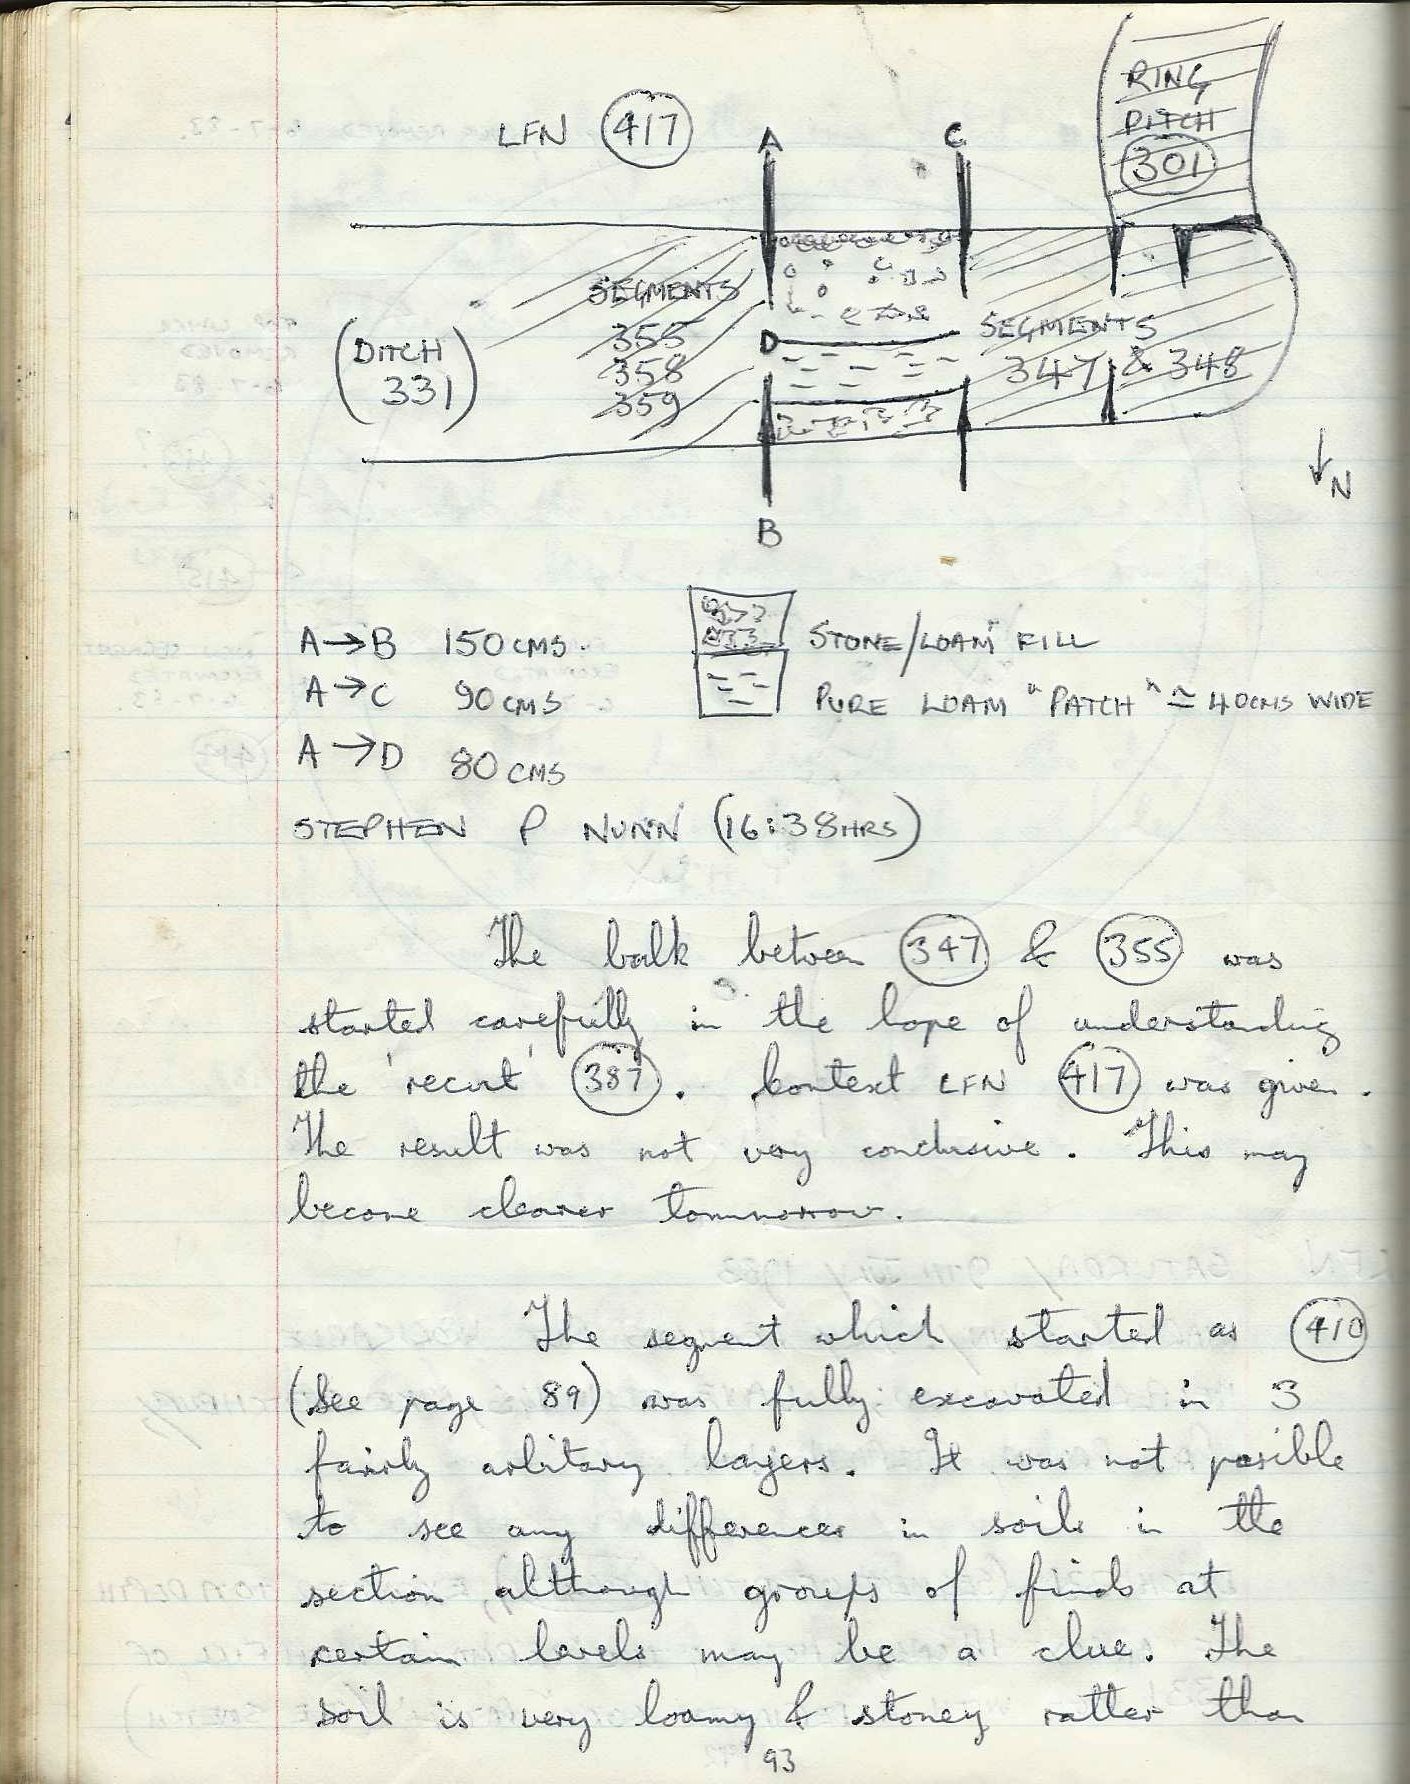 RING
DITCH
301
LFN 417
A
C
SEGMENTS
355
358
359
(DITCH
331)
D
SEGMENTS
347 & 348
↓N
B
A→B 150 CMS.
STONE/LOAM FILL
A→C 90 CMS
PURE LOAM "PATCH" ≃ 40CMS WIDE
A→D 80 CMS
STEPHEN P NUNN (16:38HRS)
The balk between 347 & 355 was
started carefully in the hope of understanding
the 'recut' 387. Context LFN 417 was given.
The result was not very conclusive. This may
become clearer tommorrow.
The segment which started as 410
(See page 89) was fully excavated in 3
fairly arbitary layers. It was not posible
to see any differences in soils in the
section although groups of finds at
certain levels may be a clue. The
soil is very loamy & stoney rather than
93